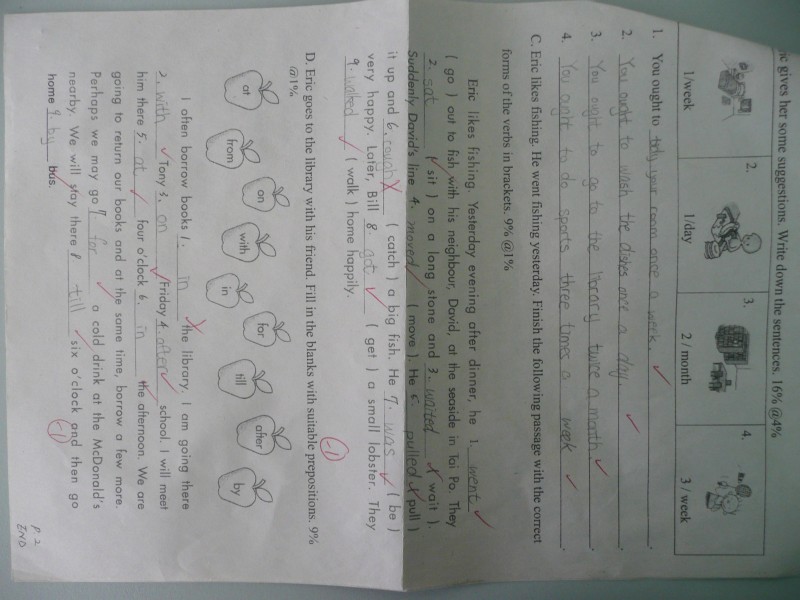 ric gives her some suggestions. Write down the sentences. 16% @4%
2. 3. 4.
1/week 1/day 2 / month 3 / week
1. You ought to tidy your room once a week.
2. You ought to wash the dishes once a day.
3. You ought to go to the library twice a month.
4. You ought to do sports three times a week.
C. Eric likes fishing. He went fishing yesterday. Finish the following passage with the correct
forms of the verbs in brackets. 9% @1%
Eric likes fishing. Yesterday evening after dinner, he 1. went
( go ) out to fish with his neighbour, David, at the seaside in Tai Po. They
2. sat ( sit ) on a long stone and 3. waited ( wait ).
Suddenly David's line 4. moved ( move ). He 5. pulled ( pull )
it up and 6. ( catch ) a big fish. He 7. was ( be )
very happy. Later, Bill 8. got ( get ) a small lobster. They
9. walked ( walk ) home happily.
-1
D. Eric goes to the library with his friend. Fill in the blanks with suitable prepositions. 9%
@1%
at from on with in for till after by
I often borrow books 1. in the library. I am going there
2. with Tony 3. on Friday 4. after school. I will meet
him there 5. at four o'clock 6. in the afternoon. We are
going to return our books and at the same time, borrow a few more.
Perhaps we may go 7. for a cold drink at the McDonald's
nearby. We will stay there 8. till six o'clock and then go
home 9. by bus.
-1
P. 2
END